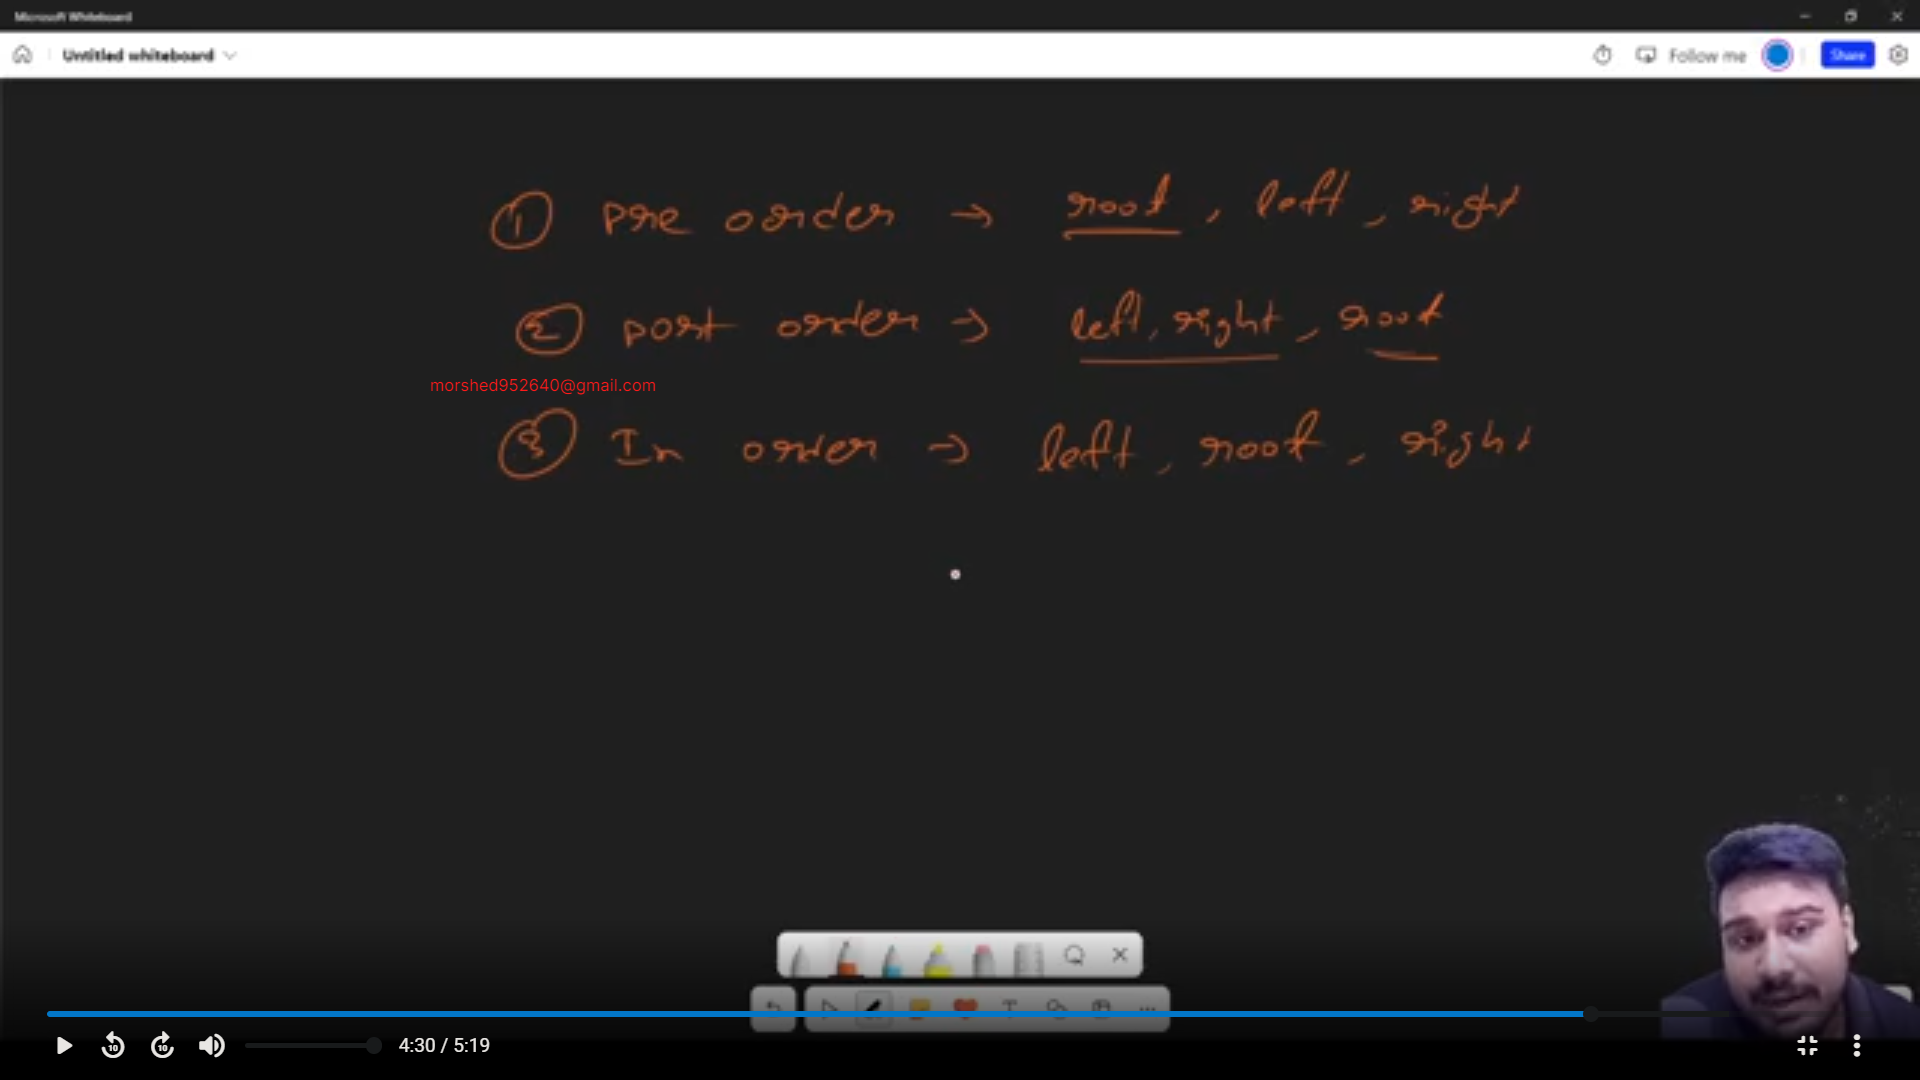 Microsoft Whiteboard
Untitled whiteboard
Follow me
Share
1 pre order → root, left, right
2 post order → left, right, root
morshed952640@gmail.com
3 In order → left, root, right
10 10 4:30 / 5:19